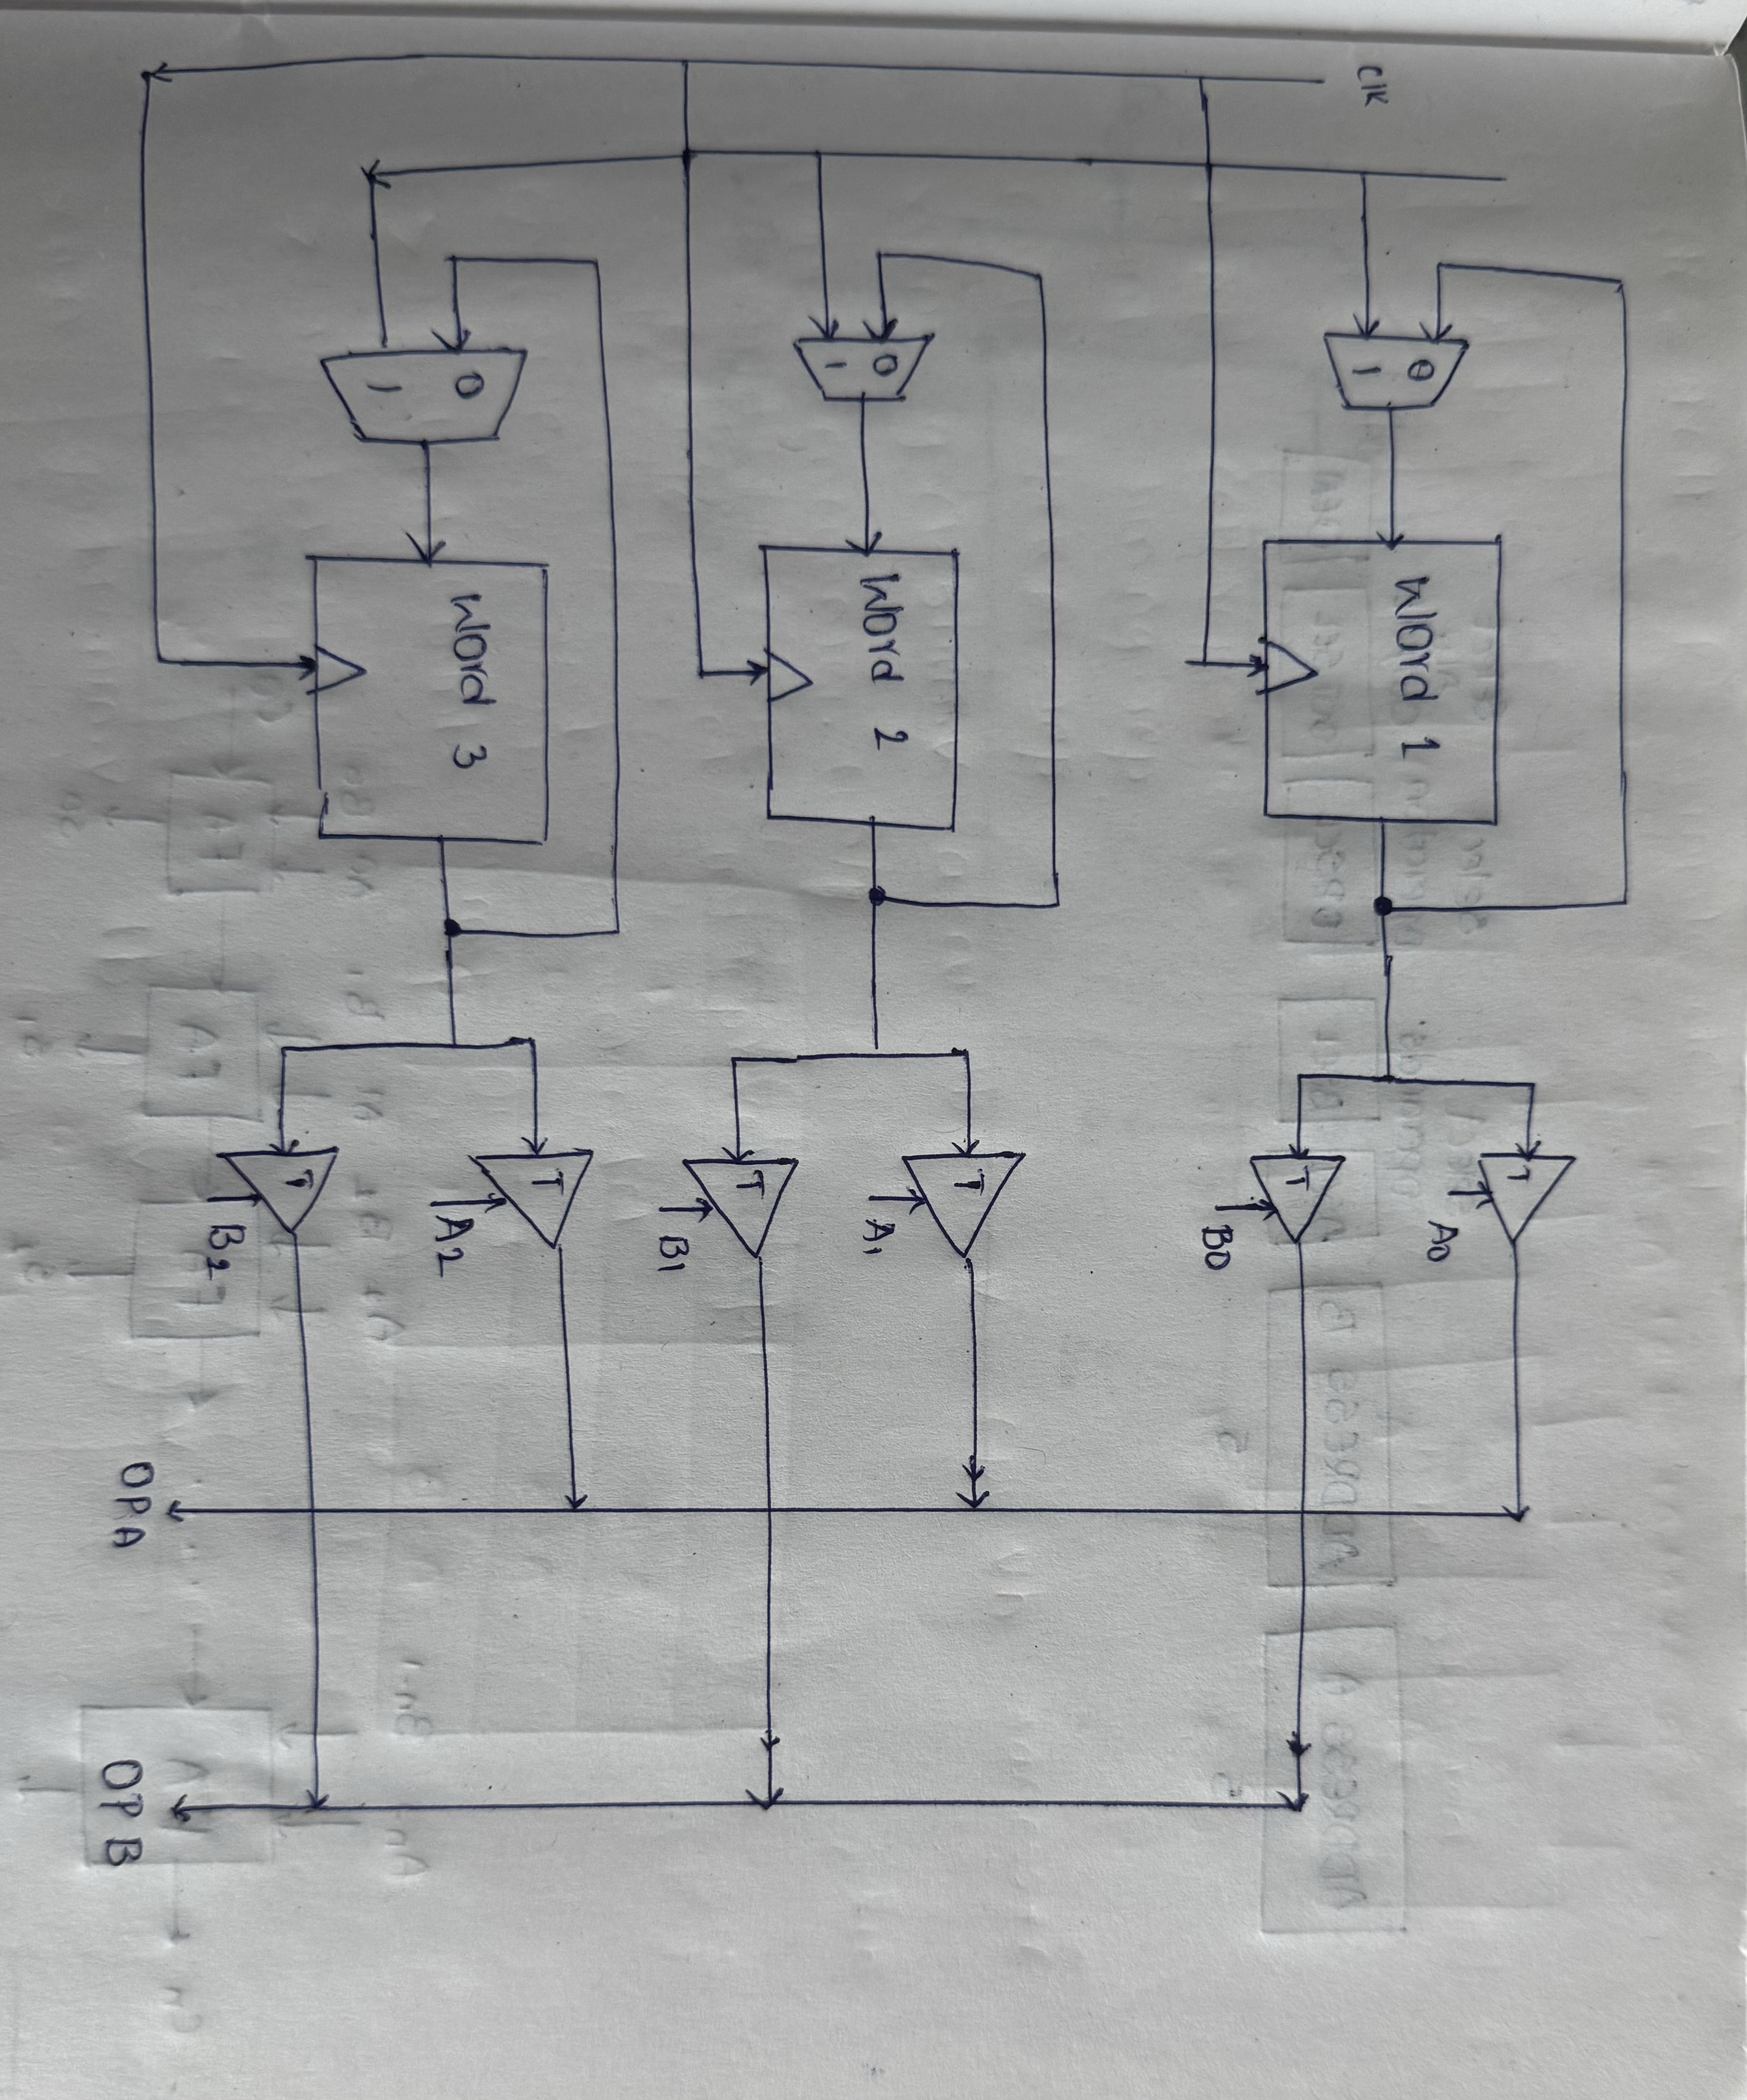 clk
0
1
Word 1
T
A0
T
B0
0
1
Word 2
T
A1
T
B1
0
1
Word 3
T
A2
T
B2
OPA
OP B